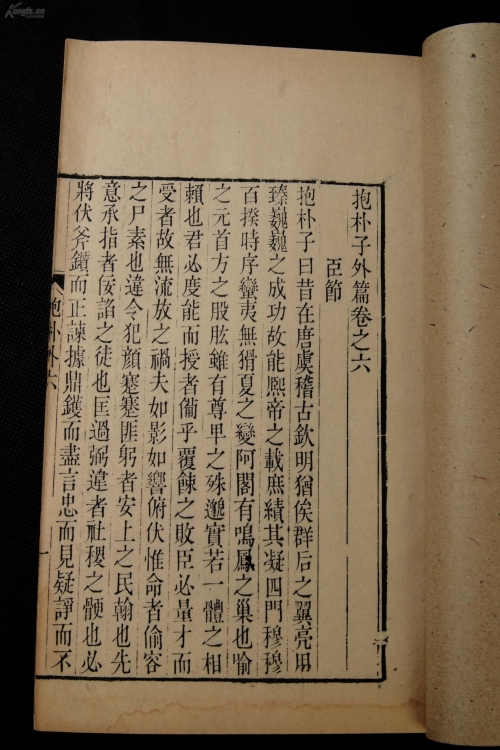 抱朴子外篇卷之六
臣節
抱朴子曰昔在唐虞稽古欽明猶俟群后之翼亮用
臻巍巍之成功故能熈帝之載庶績其凝四門穆穆
百揆時序蠻夷無猾夏之變阿閣有鳴鳳之巢也喻
之元首方之股肱雖有尊卑之殊邈實若一體之相
賴也君必度能而授者俻乎覆餗之敗臣必量才而
受者故無流放之禍夫如影如響俯伏惟命者偷容
之尸素也違令犯顔蹇蹇匪躬者安上之民翰也先
意承指者佞諂之徒也匡過弼違者社稷之骾也必
將伏斧鑕而正諫據鼎鑊而盡言忠而見疑諍而不
抱朴外六
一
Kongfz.cn